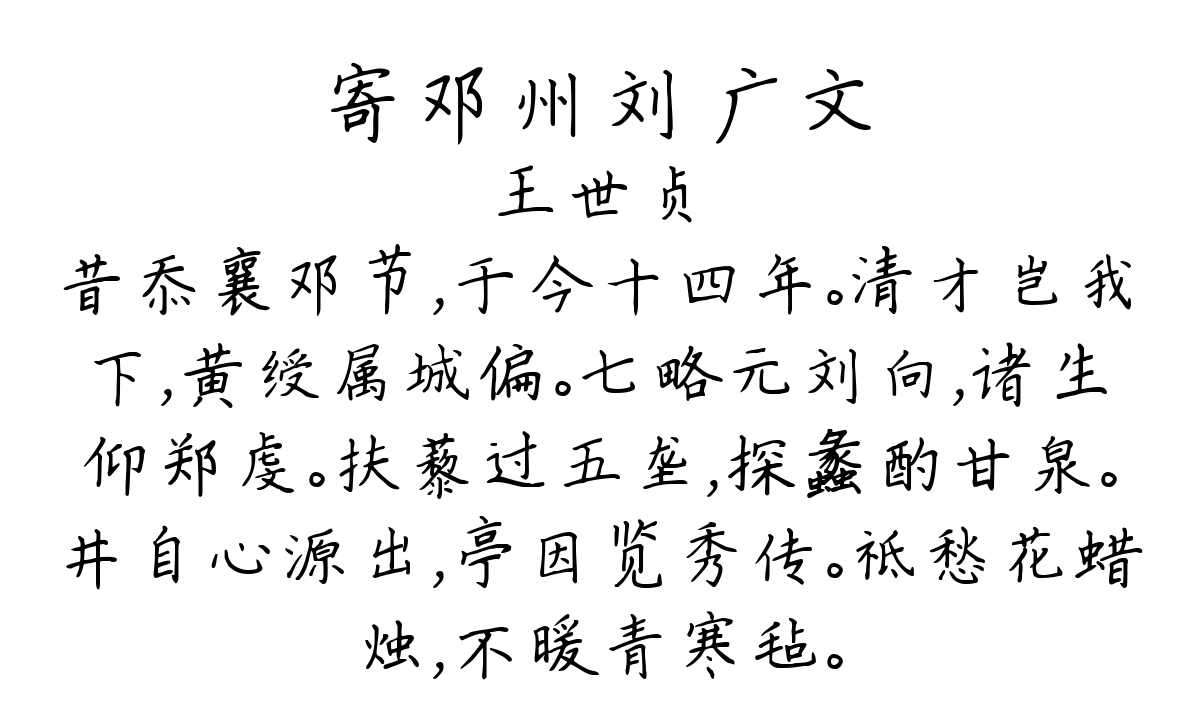 寄邓州刘广文
王世贞
昔忝襄邓节,于今十四年。清才岂我
下,黄绶属城偏。七略元刘向,诸生
仰郑虔。扶藜过五垄,探蠡酌甘泉。
井自心源出,亭因览秀传。祗愁花蜡
烛,不暖青寒毡。